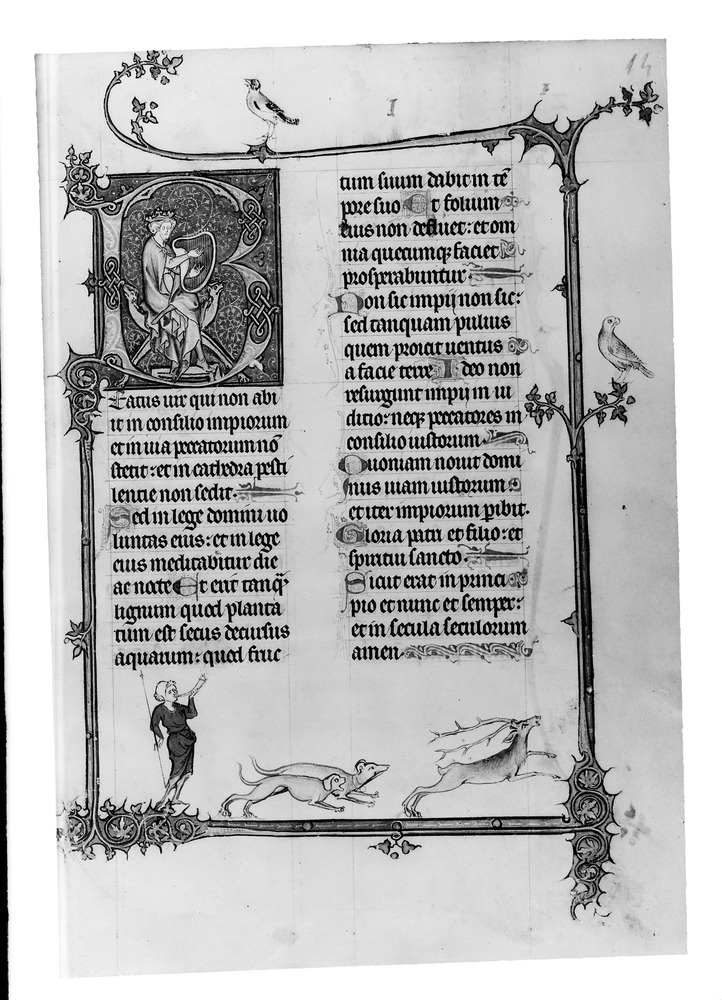 14
I
Beatus uir qui non abi
it in consilio impiorum
et in uia peccatorum nō
stetit: et in cathedra pesti
lentie non sedit.
Sed in lege domini uo
luntas eius: et in lege
eius meditabitur die
ac nocte Et erit tanq̄
lignum quod planta
tum est secus decursus
aquarum: quod fruc
tum suum dabit in tē
pore suo Et folium
eius non defluet: et om
nia quecumq; faciet
prosperabuntur.
Non sic impij non sic:
sed tanquam puluis
quem proicit uentus
a facie terre Ideo non
resurgunt impij in iu
dicio: neq; peccatores in
consilio iustorum.
Quoniam nouit domi
nus uiam iustorum
et iter impiorum ꝑibit.
Gloria patri et filio: et
spiritui sancto.
Sicut erat in princi
pio et nunc et semper:
et in secula seculorum
amen.